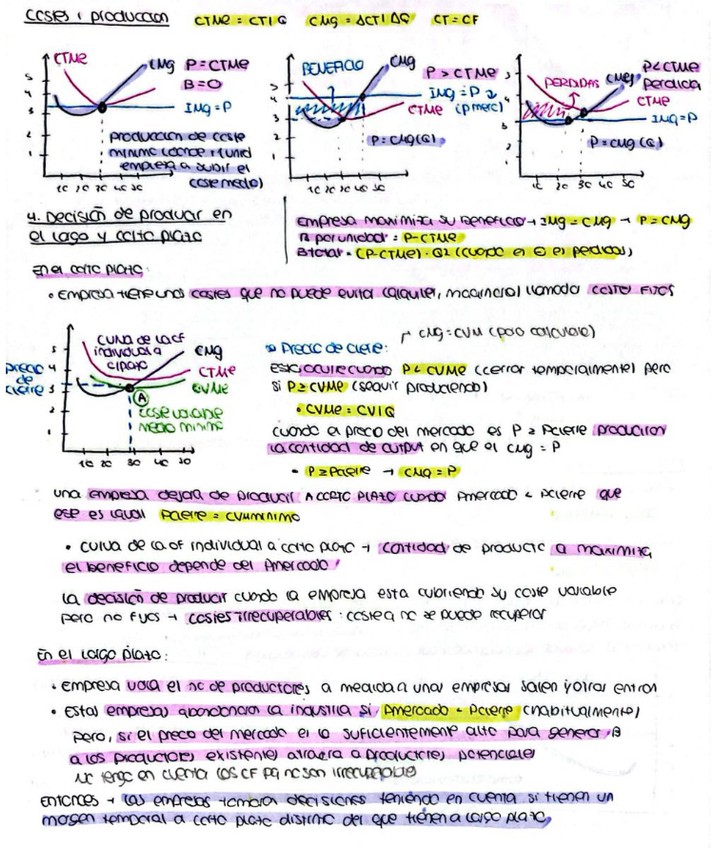 costes i produccion CTMe = CT/Q CMg = ΔCT/ΔQ CT = CF
CTMe CMg P = CTMe
B = 0
IMg = P
5
4
3
2
1
10 20 30 40 50
produccion de coste
minimo (donde + (unid
empresa a subir el
coste medio)
BENEFICIO CMg P > CTMe
IMg = P
CTMe (P merc)
P = CMg(Q)
5
4
3
2
1
10 20 30 40 50
PERDIDAS CMg P < CTMe
perdida
CTMe
IMg = P
P = CMg (Q)
5
3
2
1
10 20 30 40 50
4. Decisión de producir en
el largo y corto plazo
Empresa maximiza su beneficio → IMg = CMg → P = CMg
B por unidad = P - CTMe
B total = (P - CTMe) · Q (cuando es ⊖ es perdidas)
En el corto plazo:
• Empresa tiene unos costes que no puede evitar (alquiler, maquinaria) llamado COSTES FIJOS
curva de la of
individual a
c.plazo
CMg
CTMe
CVMe
precio
de
cierre
5
4
3
2
1
A
coste variable
medio minimo
10 20 30 40 50
CMg = CVM (para calcularlo)
Precio de cierre:
Esto ocurre cuando P < CVMe (cerrar temporalmente) pero
si P ≥ CVMe (seguir produciendo)
• CVMe = CV/Q
cuando el precio del mercado es P ≥ Pcierre producirán
la cantidad de output en que el CMg = P
• P ≥ Pcierre → CMg = P
una empresa dejará de producir A CORTO PLAZO cuando Pmercado < Pcierre que
ese es igual Pcierre = CVMminimo
• curva de la of individual a corto plazo → cantidad de producto q maximiza
el beneficio depende del Pmercado
La decisión de producir cuando la empresa esta cubriendo su coste variable
pero no fijos → costes irrecuperables: coste q no se puede recuperar
En el largo plazo:
• Empresa varia el nº de productores, a medida q unas empresas salen y otras entran
• Estas empresas abandonaran la industria si Pmercado < Pcierre (habitualmente)
pero, si el precio del mercado es lo suficientemente alto para generar B
a los productores existentes atraera a productores potenciales
No tengo en cuenta los CF pq no son irrecuperables
ENTONCES → las empresas tomaran decisiones teniendo en cuenta si tienen un
margen temporal a corto plazo distinto del que tienen a largo plazo